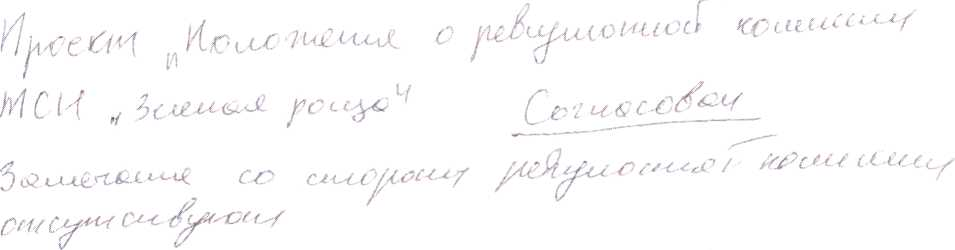 Проект „Положения о ревизионной комиссии
ТСН „Зеленая роща" Согласован
Замечания со стороны ревизионной комиссии
отсутствуют